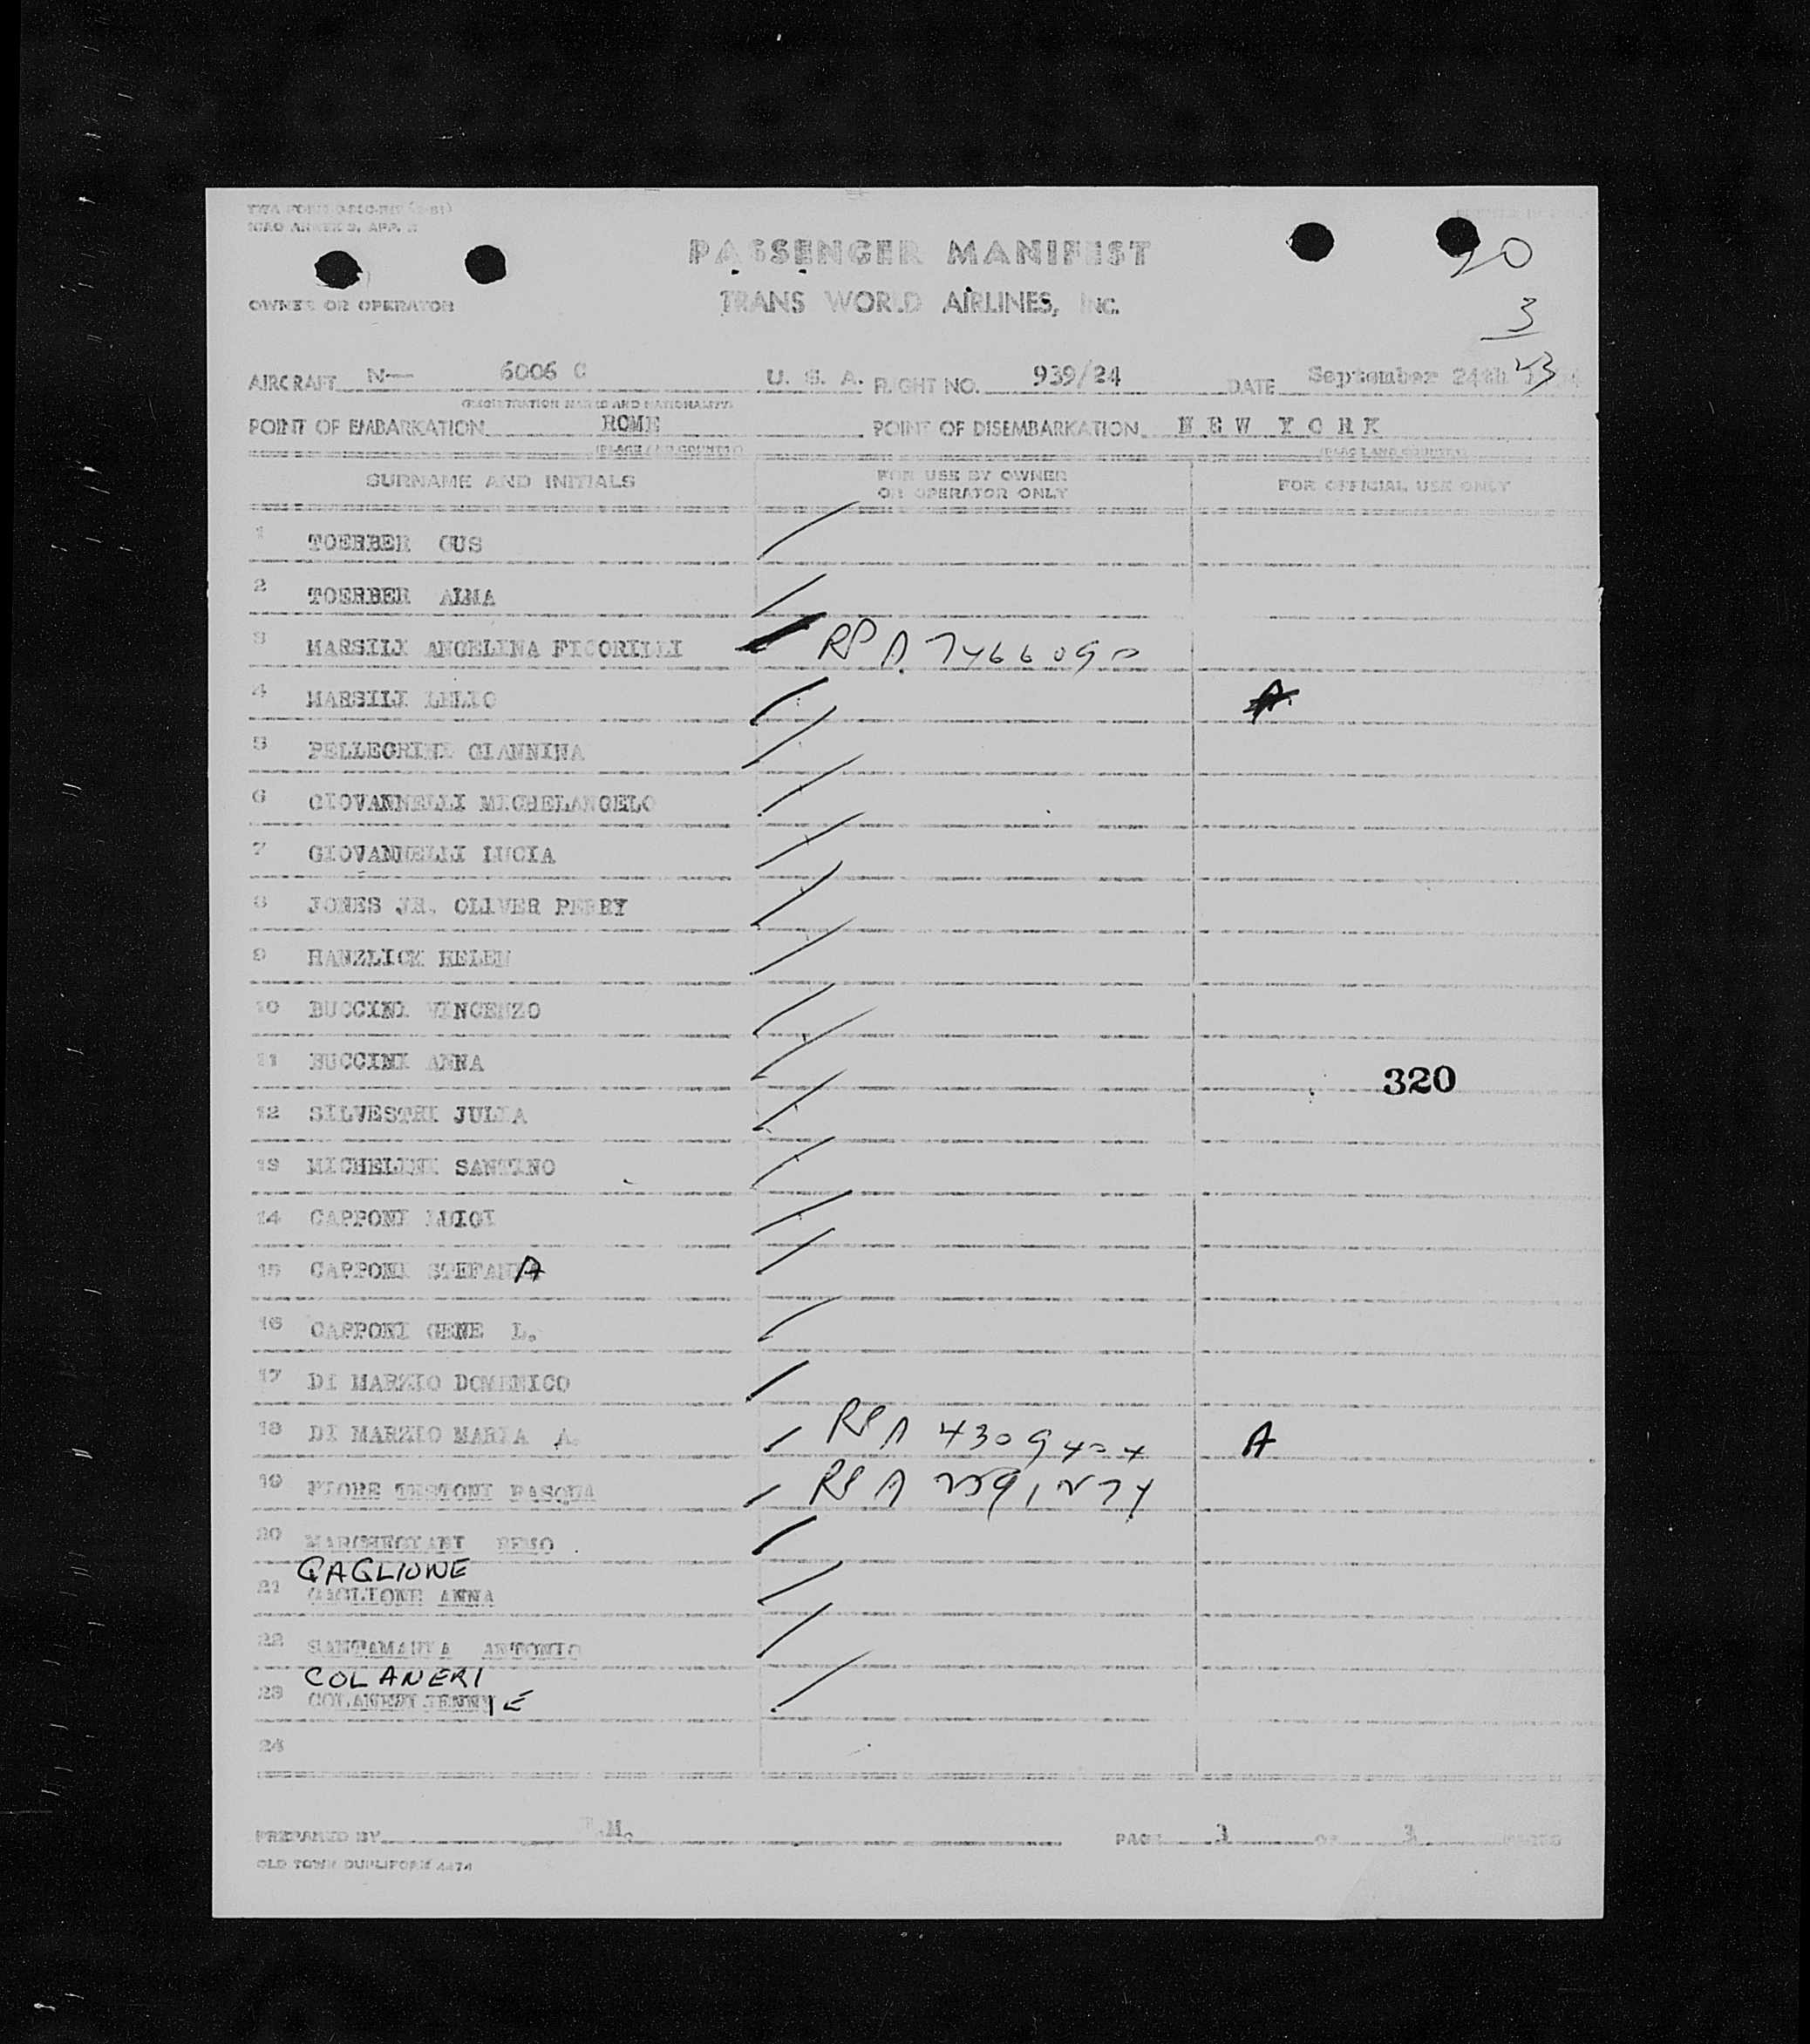 ICAO ANNEX 9, APP.
PASSENGER MANIFEST
20
OWNER OR OPERATOR
TRANS WORLD AIRLINES, INC.
3
23
AIRCRAFT N— 6006 C U. S. A. FLIGHT NO. 939/24 DATE September 24th
(REGISTRATION MARKS AND NATIONALITY)
POINT OF EMBARKATION ROME POINT OF DISEMBARKATION NEW YORK
(PLACE AND COUNTRY) (PLACE AND COUNTRY)
SURNAME AND INITIALS FOR USE BY OWNER OR OPERATOR ONLY FOR OFFICIAL USE ONLY
1 TOERBER GUS
2 TOERBER ALMA
3 MARSILI ANGELINA FIGORILLI RP A 7466090
4 MARSILI LELIO A
5 PELLEGRINI GIANNINA
6 GIOVANNELLI MICHELANGELO
7 GIOVANNELLI LUCIA
8 JONES JR. OLIVER PERRY
9 HANZLICK HELEN
10 BUCCINI VINCENZO
11 BUCCINI ANNA
320
12 SILVESTRI JULIA
13 MICHELINI SANTINO
14 CAPPONI LUIGI
15 CAPPONI STEFANA
16 CAPPONI GENE L.
17 DI MARZIO DOMENICO
18 DI MARZIO MARIA A. RP A 4309404 A
19 FIORE TESTONI PASQUA RP A
20 MARCHEGIANI REMO
GAGLIONE
21 GAGLIONE ANNA
22 SANTAMARIA ANTONIO
COLANERI
23 COLANERI JENNIE
24
PREPARED BY .M. PAGE 1 OF PAGES
OLD TOWN DUPLIFORM 4474